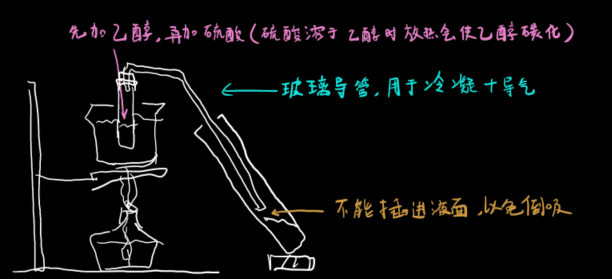 先加乙醇，再加硫酸（硫酸溶于乙醇时放热会使乙醇碳化）
玻璃导管，用于冷凝+导气
不能插进液面，以免倒吸